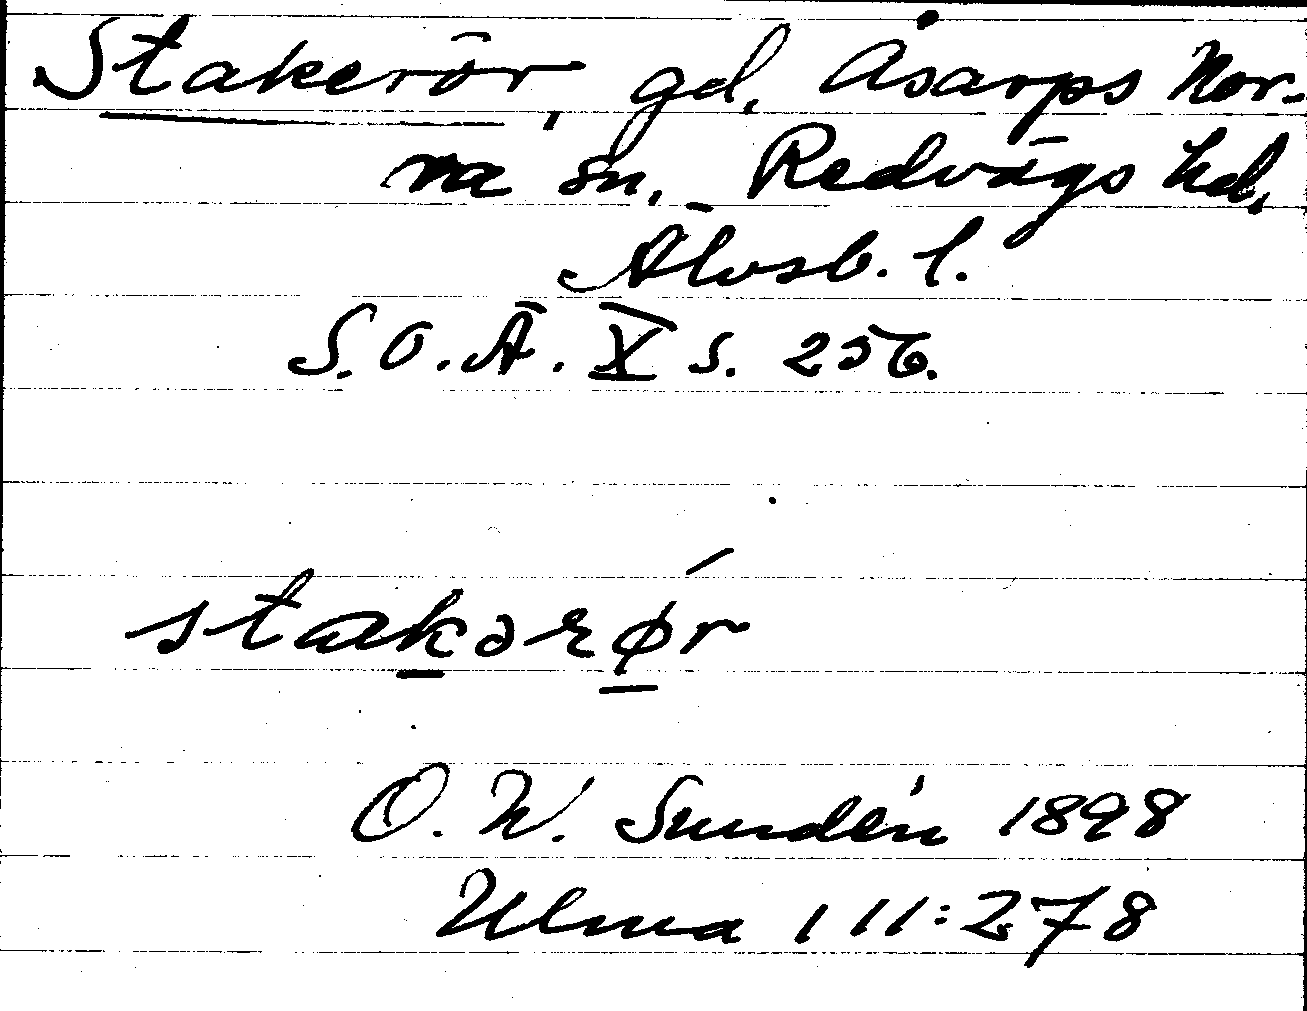 Stakerör, gd, Åsarps Nor-
ra sn, Redvägs hd,
Älvsb. l.
S.O.Ä. X s. 256.
stakərǿ̱r
O. W. Sundén 1898
Ulma 111:278